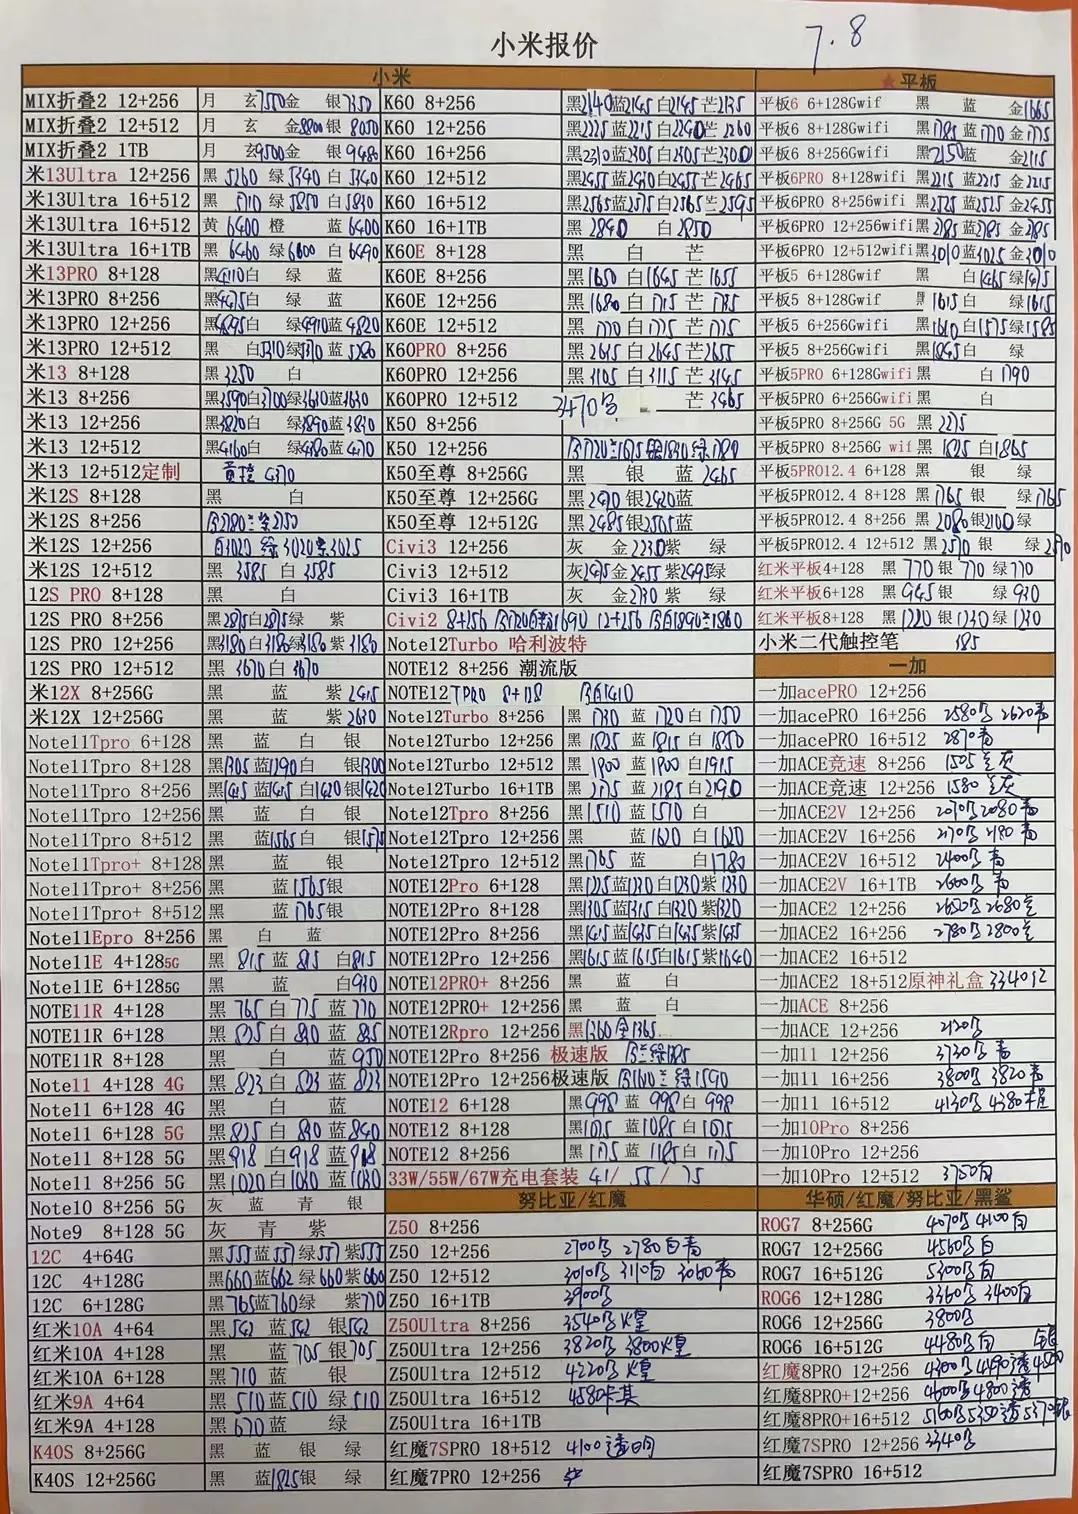 小米报价 7.8
小米
MIX折叠2 12+256 月 玄7550金 银7350
MIX折叠2 12+512 月 玄 金8800银 8050
MIX折叠2 1TB 月 玄9500金 银9480
米13Ultra 12+256 黑 5260 绿5340 白5340
米13Ultra 16+512 黑 5710 绿5850 白5830
米13Ultra 16+512 黄 6400 橙 蓝6400
米13Ultra 16+1TB 黑 6460 绿6600 白6490
米13PRO 8+128 黑4110白 绿 蓝
米13PRO 8+256 黑4475白 绿 蓝
米13PRO 12+256 黑4895白 绿4910蓝4820
米13PRO 12+512 黑 白5310绿 蓝5280
米13 8+128 黑3250 白
米13 8+256 黑3590白3700绿3630蓝3630
米13 12+256 黑3820白 绿3890蓝3830
米13 12+512 黑4160白 绿4180蓝4170
米13 12+512定制 4370
米12S 8+128 黑 白
米12S 8+256 2780 2750
米12S 12+256 白3020 绿3020 3025
米12S 12+512 黑 3585 白 3585
12S PRO 8+128 黑 白
12S PRO 8+256 黑2875白2875绿 紫
12S PRO 12+256 黑3180白3180绿3180紫3180
12S PRO 12+512 黑 3670白3670
米12X 8+256G 黑 蓝 紫2415
米12X 12+256G 黑 蓝 紫2630
Note11Tpro 6+128 黑 蓝 白 银
Note11Tpro 8+128 黑1305蓝1290白 银1300
Note11Tpro 8+256 黑1415蓝1415白1420银1420
Note11Tpro 12+256 黑 蓝 白 银
Note11Tpro 8+512 黑 蓝1565白 银1575
Note11Tpro+ 8+128 黑 蓝 银
Note11Tpro+ 8+256 黑 蓝1565银
Note11Tpro+ 8+512 黑 蓝1765银
Note11Epro 8+256 黑 白 蓝
Note11E 4+1285G 黑 815 蓝 815 白815
Note11E 6+1285G 黑 蓝 白930
NOTE11R 4+128 黑 765 白 775 蓝 770
NOTE11R 6+128 黑 835 白 840 蓝 835
NOTE11R 8+128 黑 白 蓝950
Note11 4+128 4G 黑 823 白 823 蓝 823
Note11 6+128 4G 黑 白 蓝
Note11 6+128 5G 黑 835 白 840 蓝840
Note11 8+128 5G 黑918 白918 蓝918
Note11 8+256 5G 黑1020白1030 蓝1030
Note10 8+256 5G 灰 蓝 青 银
Note9 8+128 5G 灰 青 紫
12C 4+64G 黑555蓝557绿557紫555
12C 4+128G 黑660蓝662绿660紫660
12C 6+128G 黑765蓝760绿 紫770
红米10A 4+64 黑542 蓝542 银542
红米10A 4+128 黑 蓝705 银705
红米10A 6+128 黑710 蓝 银
红米9A 4+64 黑 510蓝510 绿510
红米9A 4+128 黑670蓝 绿
K40S 8+256G 黑 蓝 银 绿
K40S 12+256G 黑 蓝1825银 绿
K60 8+256 黑2140蓝2145白2145芒2135
K60 12+256 黑2225蓝2215白2240芒2260
K60 16+256 黑2310蓝2305白2305芒2300
K60 12+512 黑2455蓝2430白2455芒2465
K60 16+512 黑2565蓝2575白2565芒2595
K60 16+1TB 黑2840 白2850
K60E 8+128 黑 白 芒
K60E 8+256 黑1650 白1645 芒1655
K60E 12+256 黑1680 白1715 芒1735
K60E 12+512 黑1770 白1775 芒1775
K60PRO 8+256 黑2615 白2645芒2655
K60PRO 12+256 黑3105 白3115 芒3145
K60PRO 12+512 3470 芒3465
K50 8+256
K50 12+256 1720 1675 银1830 绿1789
K50至尊 8+256G 黑 银 蓝2465
K50至尊 12+256G 黑2410银2420蓝
K50至尊 12+512G 黑2485银2505蓝
Civi3 12+256 灰 金2230紫 绿
Civi3 12+512 灰2475金2455紫2495绿
Civi3 16+1TB 灰 金2730紫 绿
Civi2 8+256 1720 1690 12+256 1890 1860
Note12Turbo 哈利波特
NOTE12 8+256 潮流版
NOTE12 TPRO 8+128 1410
Note12Turbo 8+256 黑 1730 蓝 1720 白 1750
Note12Turbo 12+256 黑 1825 蓝 1815 白 1850
Note12Turbo 12+512 黑 1900 蓝 1900 白1915
Note12Turbo 16+1TB 黑 2175 蓝 2185白2190
Note12Tpro 8+256 黑1510 蓝1510 白
Note12Tpro 12+256 黑 蓝1620 白1620
Note12Tpro 12+512 黑1765 蓝 白1780
NOTE12Pro 6+128 黑1225蓝1230白1230紫1230
NOTE12Pro 8+128 黑1305蓝1315白1320紫1320
NOTE12Pro 8+256 黑1415蓝1435白1435紫1435
NOTE12Pro 12+256 黑1615蓝1615白1615紫1640
NOTE12PRO+ 8+256 黑 蓝 白
NOTE12PRO+ 12+256 黑 蓝 白
NOTE12Rpro 12+256 黑1360金1365
NOTE12Pro 8+256 极速版
NOTE12Pro 12+256极速版 1600 绿1590
NOTE12 6+128 黑998 蓝 998白 998
NOTE12 8+128 黑1075 蓝1085 白1075
NOTE12 8+256 黑1175 蓝1185白 1175
33W/55W/67W充电套装 41/ 55 / 75
努比亚/红魔
Z50 8+256
Z50 12+256 2700 2780白青
Z50 12+512 3010 3110白 3060青
Z50 16+1TB 3900
Z50Ultra 8+256 3540 煌
Z50Ultra 12+256 3820 3800煌
Z50Ultra 12+512 4220 煌
Z50Ultra 16+512 4580卡其
Z50Ultra 16+1TB
红魔7SPRO 18+512 4100透明
红魔7PRO 12+256
★平板
平板6 6+128Gwif 黑 蓝 金1665
平板6 8+128Gwifi 黑1785蓝1770金1775
平板6 8+256Gwifi 黑2150蓝 金2115
平板6PRO 8+128wifi 黑2215蓝2215金2215
平板6PRO 8+256wifi 黑2525蓝2525金2455
平板6PRO 12+256wifi 黑2785蓝2785金2785
平板6PRO 12+512wifi 黑3010蓝3025金3010
平板5 6+128Gwif 黑 白1465绿1475
平板5 8+128Gwif 1615 白 绿1615
平板5 6+256Gwifi 黑1610白1575绿1585
平板5 8+256Gwifi 黑1845白 绿
平板5PRO 6+128Gwifi 黑 白1790
平板5PRO 6+256Gwifi 黑 白
平板5PRO 8+256G 5G 黑 2275
平板5PRO 8+256G wif 黑 1825 白1865
平板5PRO12.4 6+128 黑 银 绿
平板5PRO12.4 8+128 黑1765 银 绿1765
平板5PRO12.4 8+256 黑 2080银2100绿
平板5PRO12.4 12+512 黑2570 银 绿2570
红米平板4+128 黑 770 银 770 绿770
红米平板6+128 黑 945银 绿 930
红米平板8+128 黑 1220 银1230 绿1230
小米二代触控笔 185
一加
一加acePRO 12+256
一加acePRO 16+256 2580 2620青
一加acePRO 16+512 2870青
一加ACE竞速 8+256 1505 灰
一加ACE竞速 12+256 1580 灰
一加ACE2V 12+256 2070 2080青
一加ACE2V 16+256 2170 2180 青
一加ACE2V 16+512 2400 青
一加ACE2V 16+1TB 2600 青
一加ACE2 12+256 2650 2680
一加ACE2 16+256 2780 2800
一加ACE2 16+512
一加ACE2 18+512原神礼盒 3340红
一加ACE 8+256
一加ACE 12+256 2120
一加11 12+256 3730 青
一加11 16+256 3800 3820青
一加11 16+512 4130 4380
一加10Pro 8+256
一加10Pro 12+256
一加10Pro 12+512 3750白
华硕/红魔/努比亚/黑鲨
ROG7 8+256G 4070 4100白
ROG7 12+256G 4560 白
ROG7 16+512G 5300 白
ROG6 12+128G 3360 3400白
ROG6 12+256G 3800
ROG6 16+512G 4480 白
红魔8PRO 12+256 4300 4490透
红魔8PRO+12+256 4600 4800透
红魔8PRO+16+512 5160 5350透5370银
红魔7SPRO 12+256 3340
红魔7SPRO 16+512